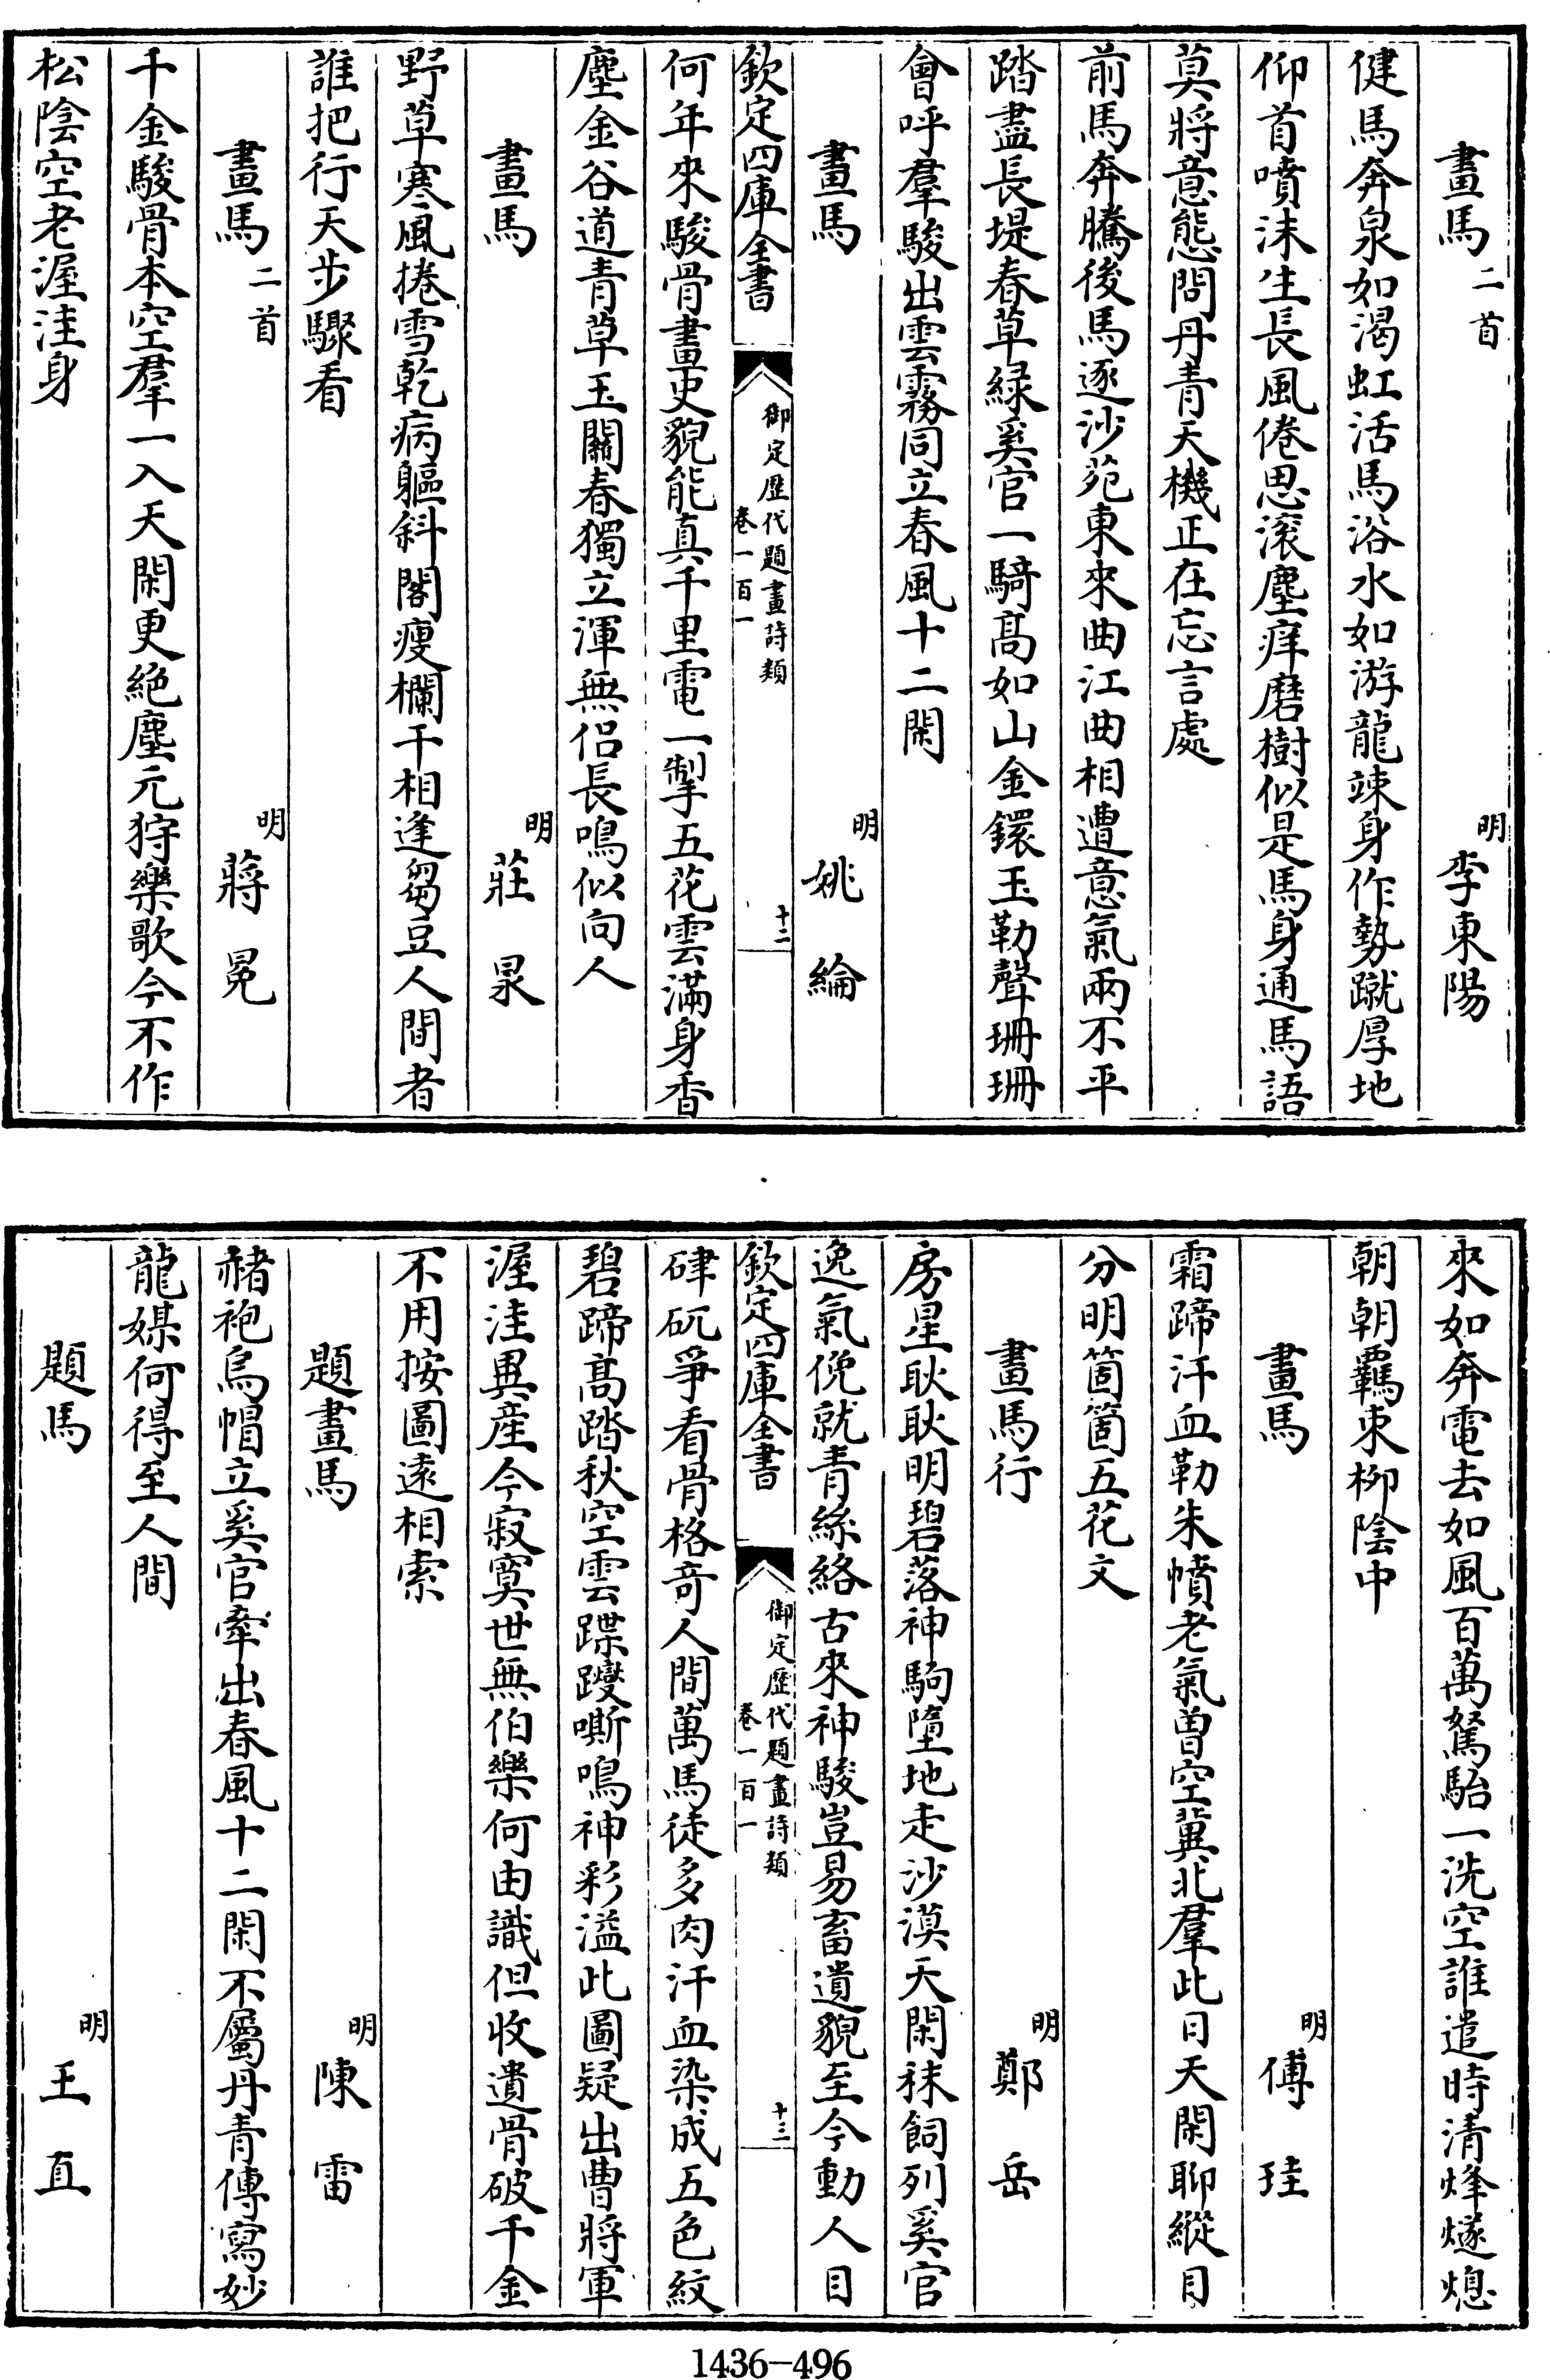 畫馬二首 明李東陽
健馬奔泉如渴虹活馬浴水如游龍竦身作勢蹴厚地
仰首噴沫生長風倦思滚塵痒磨樹似是馬身通馬語
莫將意態問丹青天機正在忘言處
前馬奔騰後馬逐沙苑東來曲江曲相遭意氣兩不平
踏盡長堤春草緑奚官一騎髙如山金鐶玉勒聲珊珊
會呼羣駿出雲霧同立春風十二閑
畫馬 明姚綸
欽定四庫全書
御定歴代題畫詩類
卷一百一
十二
何年來駿骨畫史貌能真千里電一掣五花雲滿身香
塵金谷道青草玉關春獨立渾無侣長鳴似向人
畫馬 明莊㫤
野草寒風捲雪乾病軀斜閣瘦欄干相逢芻豆人間者
誰把行天步驟看
畫馬二首 明蔣冕
千金駿骨本空羣一入天閑更絶塵元狩樂歌今不作
松陰空老渥洼身
來如奔電去如風百萬駑駘一洗空誰遣時清烽燧熄
朝朝羈束栁陰中
畫馬 明傅珪
霜蹄汗血勒朱幩老氣曽空冀北羣此日天閑聊縱目
分明箇箇五花文
畫馬行 明鄭岳
房星耿耿明碧落神駒墮地走沙漠天閑秣飼列奚官
逸氣俛就青絲絡古來神駿豈易畜遺貌至今動人目
欽定四庫全書
御定歴代題畫詩類
卷一百一
十三
硉矹爭看骨格竒人間萬馬徒多肉汗血染成五色紋
碧蹄髙踏秋空雲蹀躞嘶鳴神彩溢此圖疑出曹將軍
渥洼異産今寂寞世無伯樂何由識但收遺骨破千金
不用按圖逺相索
題畫馬 明陳雷
赭袍烏帽立奚官牽出春風十二閑不屬丹青傳寫妙
龍媒何得至人間
題馬 明王直
1436-496